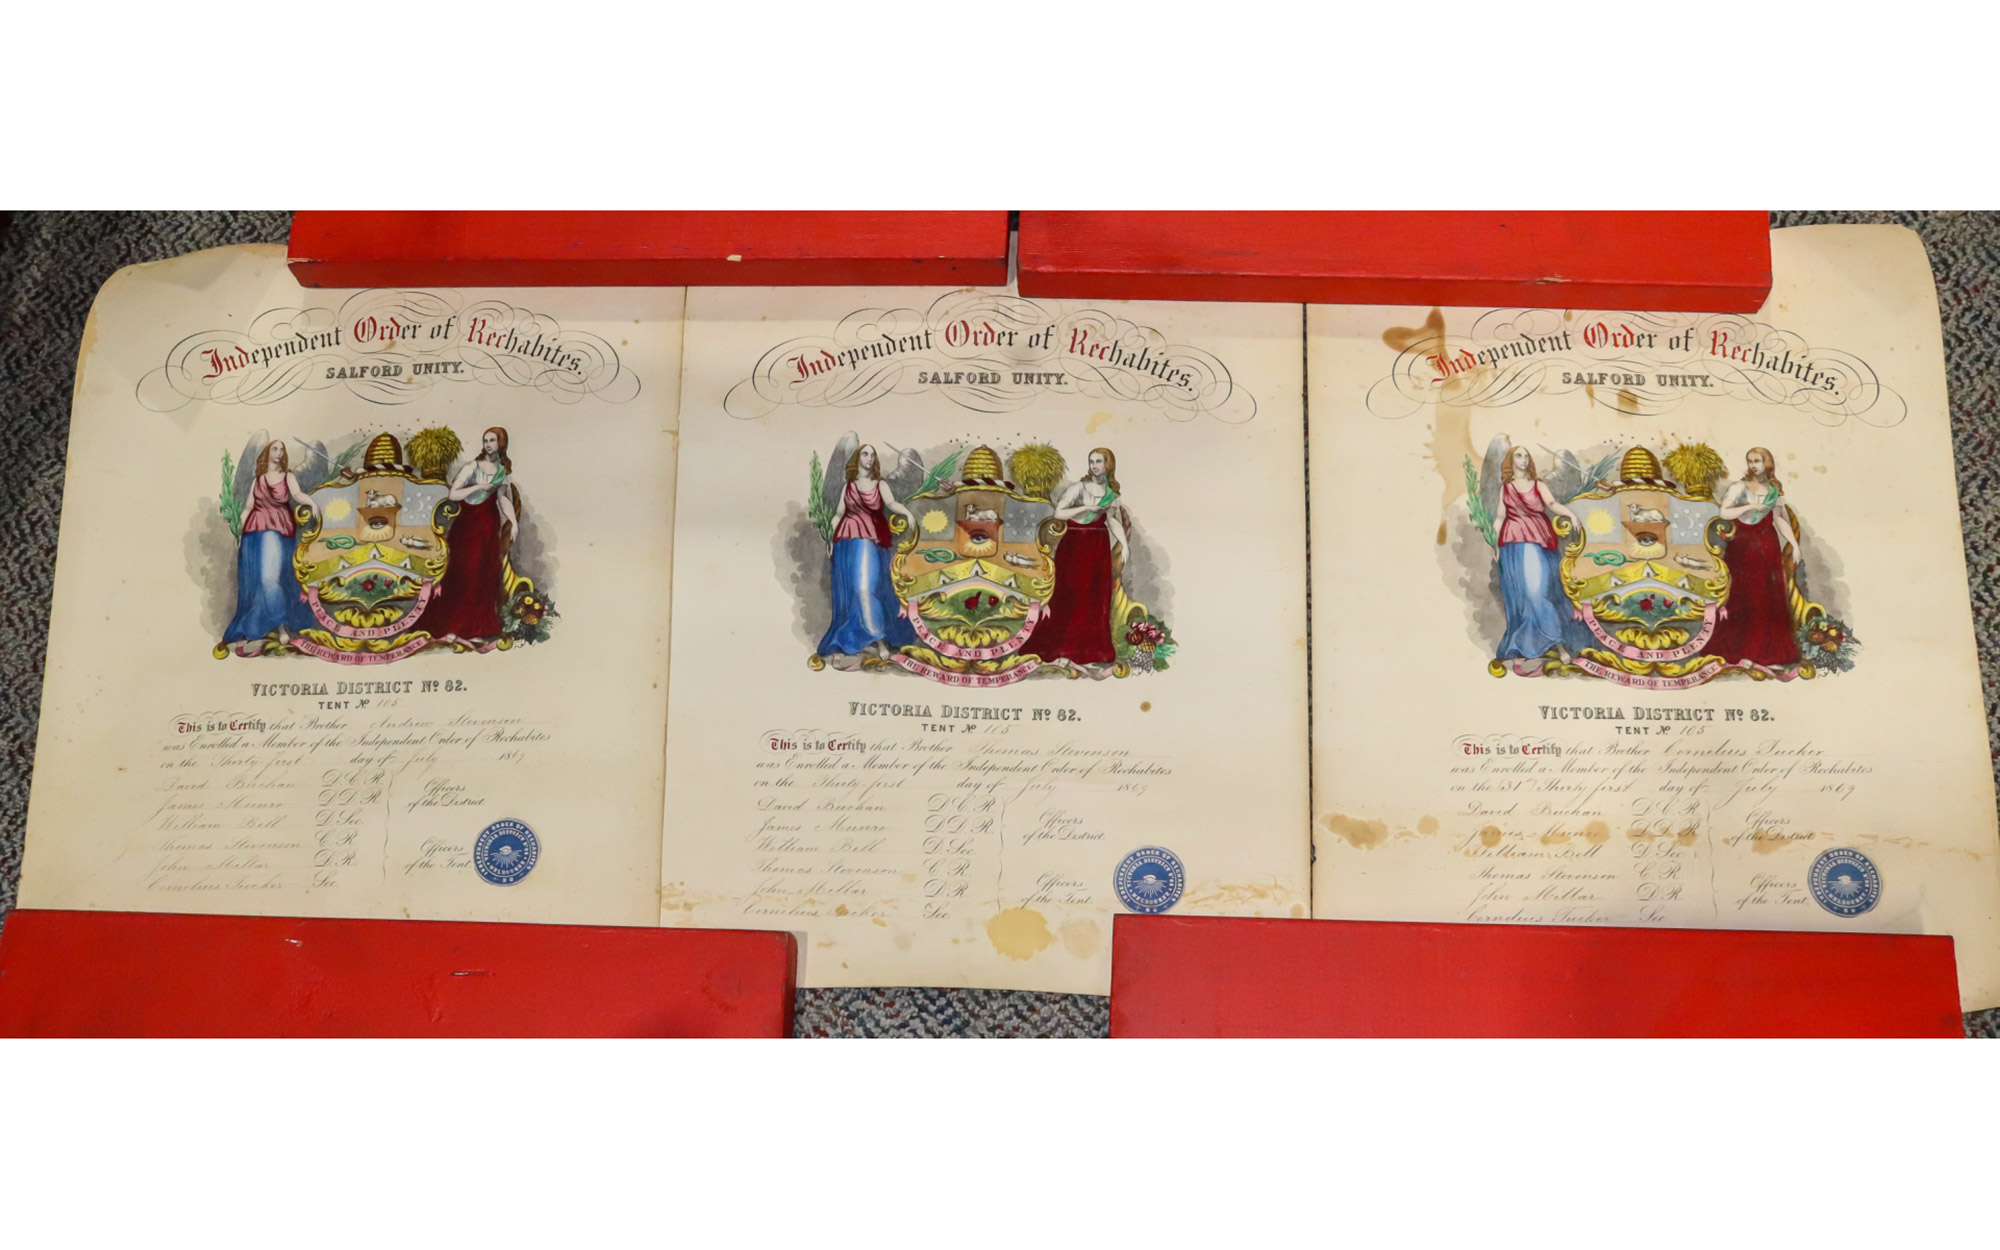 Independent Order of Rechabites.
SALFORD UNITY.
PEACE AND PLENTY
THE REWARD OF TEMPERANCE
VICTORIA DISTRICT No 82.
TENT No 105
This is to Certify that Brother Andrew Stevenson
was Enrolled a Member of the Independent Order of Rechabites
on the Thirty-first day of July 1869
David Buchan D.C.R.
James Munro D.D.R.
William Bell D.Sec
Officers of the District.
Thomas Stevenson C.R.
John Millar D.R.
Cornelius Tucker Sec
Officers of the Tent.
Independent Order of Rechabites.
SALFORD UNITY.
PEACE AND PLENTY
THE REWARD OF TEMPERANCE
VICTORIA DISTRICT No 82.
TENT No 105
This is to Certify that Brother Thomas Stevenson
was Enrolled a Member of the Independent Order of Rechabites
on the Thirty-first day of July 1869
David Buchan D.C.R.
James Munro D.D.R.
William Bell D.Sec
Officers of the District.
Thomas Stevenson C.R.
John Millar D.R.
Cornelius Tucker Sec
Officers of the Tent.
Independent Order of Rechabites.
SALFORD UNITY.
PEACE AND PLENTY
THE REWARD OF TEMPERANCE
VICTORIA DISTRICT No 82.
TENT No 105
This is to Certify that Brother Cornelius Tucker
was Enrolled a Member of the Independent Order of Rechabites
on the (31st) Thirty first day of July 1869
David Buchan D.C.R.
James Munro D.D.R.
William Bell D.Sec
Officers of the District.
Thomas Stevenson C.R.
John Millar D.R.
Cornelius Tucker Sec
Officers of the Tent.